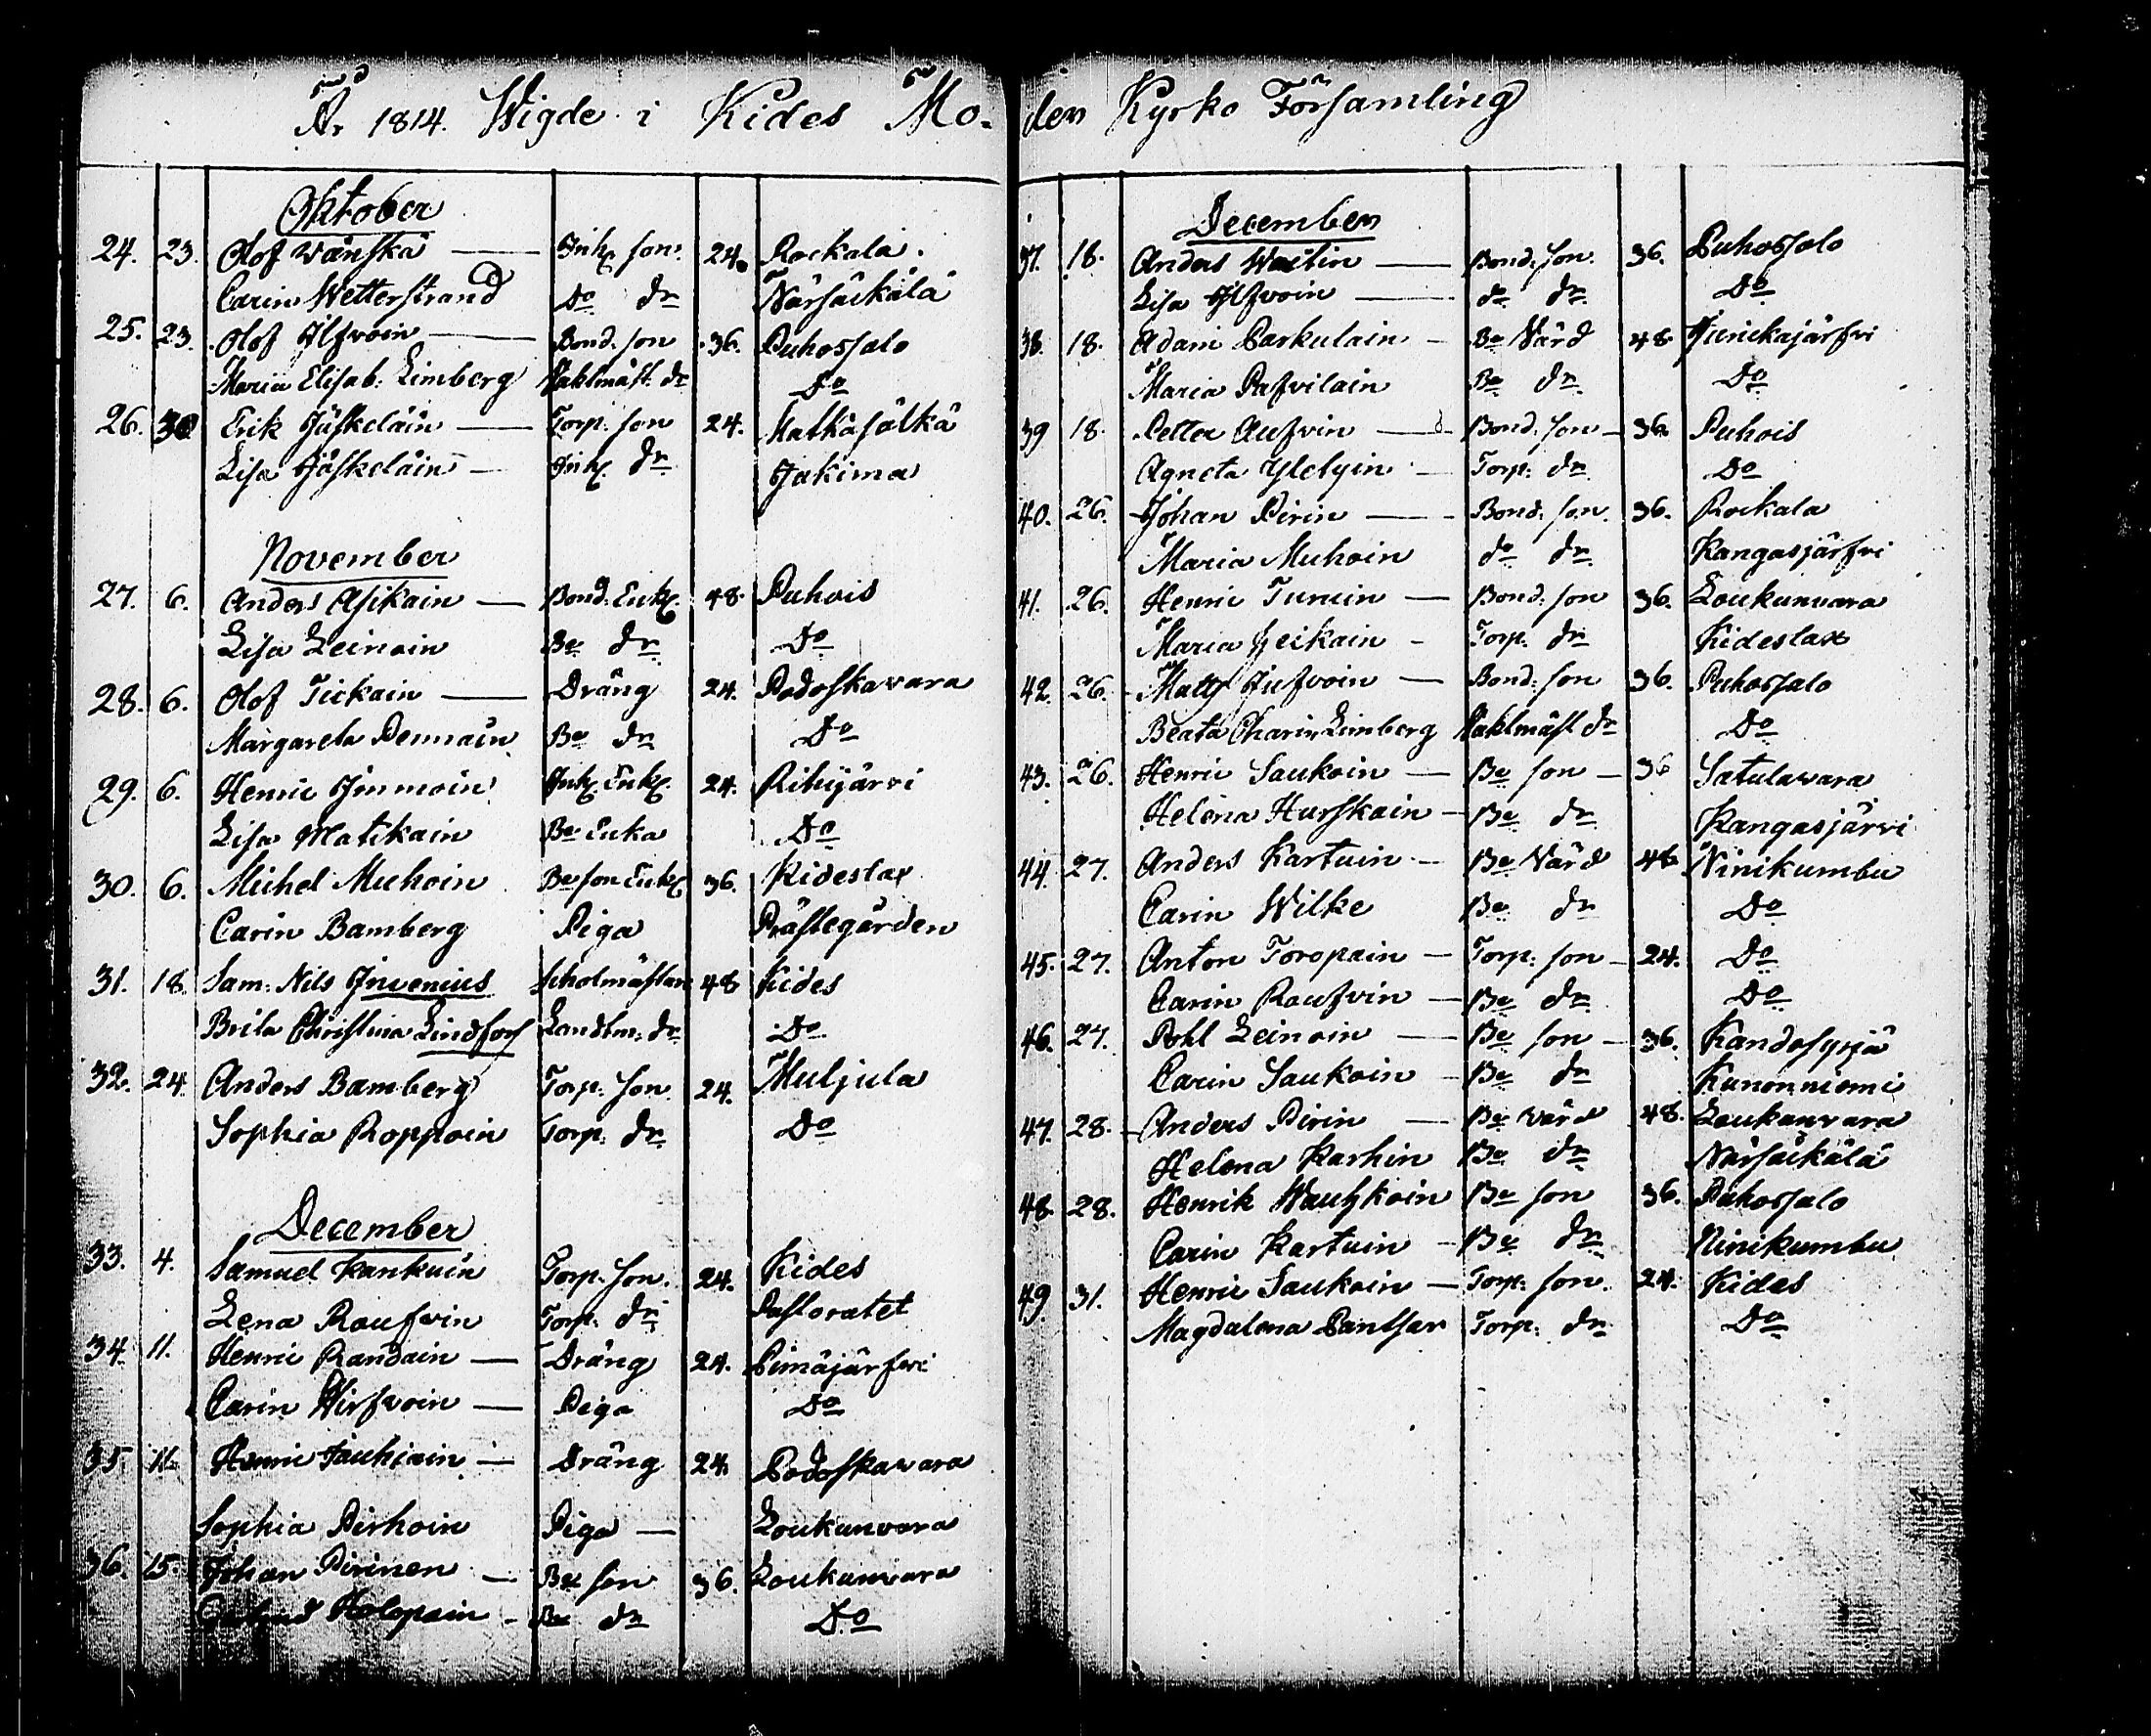 År 1814. Wigde i Kides Mo-
der Kyrko Församling
Oktober
24. 23. Olof Wänskä — Inh. son. 24. Rockala.
Carin Wetterstrand Do dr Närsäckälä
25. 23. Olof Ilfvoin — Bond. son 36. Puhossalo
Maria Elisab. Limberg Do
26. 30 Erik Jäskeläin — Torp. son 24. Matkasälkä
Lisa Jäskeläin — Inh. dr Jakima
November
27. 6. Anders Asikain — Bond. Enkl. 48. Puhois
Lisa Leinoin Be dr Do
28. 6. Olof Tickain — Dräng 24. Podoskawara
Margareta Pennain Be dr Do
29. 6. Henric Immoin Inh. Enkl. 24. Rihijärvi
Lisa Matikain Be Enka Do
30. 6. Michel Muhoin Be son Enkl. 36. Kideslax
Carin Bamberg Piga Prästegården
31. 18. Sam: Nils Juvenius Scholmästare 48 Kides
Brita Christina Lindfors Landtm: dr Do
32. 24 Anders Bamberg Torp. son 24. Muljula
Sophia Roppoin Torp. dr Do
December
33. 4. Samuel Kankuin Torp. son. 24. Kides
Lena Raufvin Torp. dr Pastoratet
34. 11. Henric Randain — Dräng 24. Pimäjärfvi
Carin Hirfvoin — Piga Do
35 11. Henric — Dräng 24. Podoskawara
Sophia Pirhoin Piga — Loukunvara
36. 15. Johan Pirinen — Be son 36. Loukunvara
Holopain - Be dr Do
December
37. 18. Anders Wäilin — Bond. son. 36. Puhossalo
Lisa Ilfvoin — do dr Do
38. 18. Adam Parkulain — Be Värd 48. Junickajärfvi
Maria Pafvilain Be dr Do
39 18. Petter Aufvin — Bond. son — 36. Puhois
Agneta Yletyin — Torp. dr Do
40. 26. Johan Pirin — Bond. son. 36. Rockala
Maria Muhoin do dr Kangasjärfvi
41. 26. Henric Turuin — Bond. son 36. Loukunvara
Maria Heikain - Torp. dr Kideslax
42. 26. Matts Jufvoin — Bond. son 36. Puhossalo
Beata Charin Limberg Do
43. 26. Henric Saukoin — Be son — 36 Satulavara
Helena Hurskain - Be dr Kangasjärvi
44. 27. Anders Kartuin — Be Värd 48. Ninikumbu
Carin Wilke Be dr Do
45. 27. Anton Toropain — Torp. son — 24. Do
Carin Raufvin — Be dr Do
46. 27. Pohl Leinoin — Be son — 36. Kandosyrjä
Carin Saukoin — Be dr Kunonniemi
47. 28. Anders Pirin — Be Värd 48. Loukunvara
Helena Karhin Be dr Närsäckälä
48. 28. Henrik Wautskoin Be son 36. Puhossalo
Carin Kartuin — Be dr Ninikumbu
49. 31. Henric Saukoin — Torp. son. 24. Kides
Magdalena Pantsar Torp. dr Do